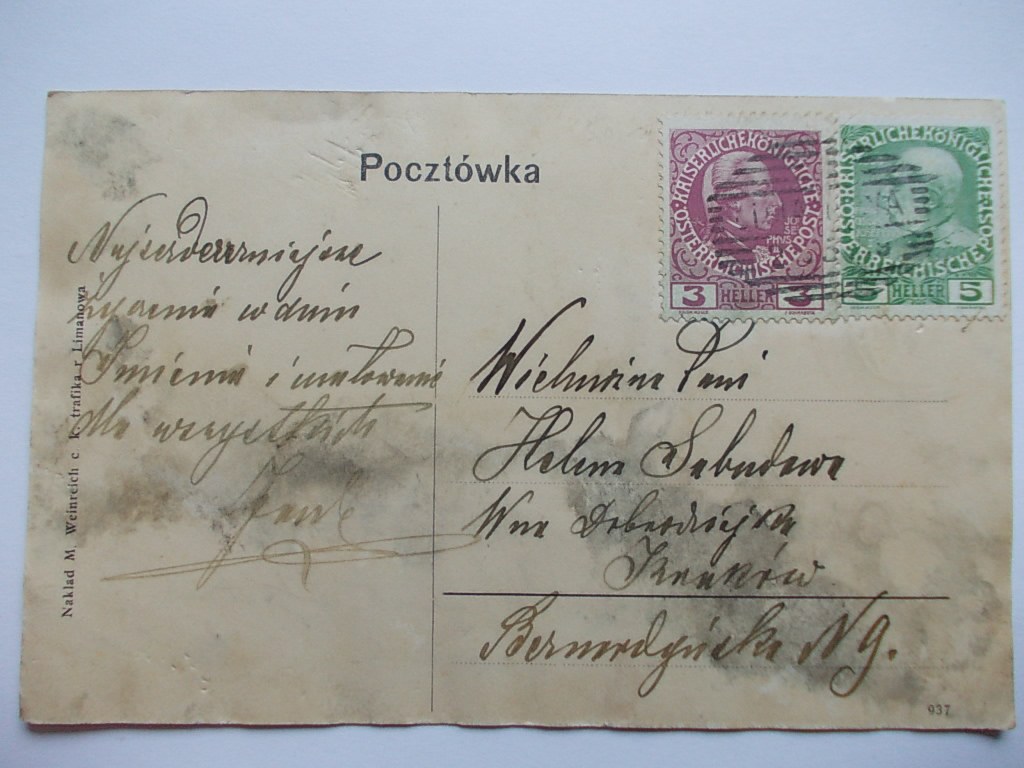 Pocztówka
KAISERLICHE KÖNIGLICHE ÖSTERREICHISCHE POST
JOSEPHVS
3 HELLER 3
KAISERLICHE KÖNIGLICHE ÖSTERREICHISCHE POST
5 HELLER 5
Najserdeczniejsze
życzenia w dniu
Imienin i
dla wszystkich
Wielmożna Pani
Helena
Wna
Kraków
Bernardyńska N 9.
Nakład M. Weinreich c. k. trafika r Limanowa
937